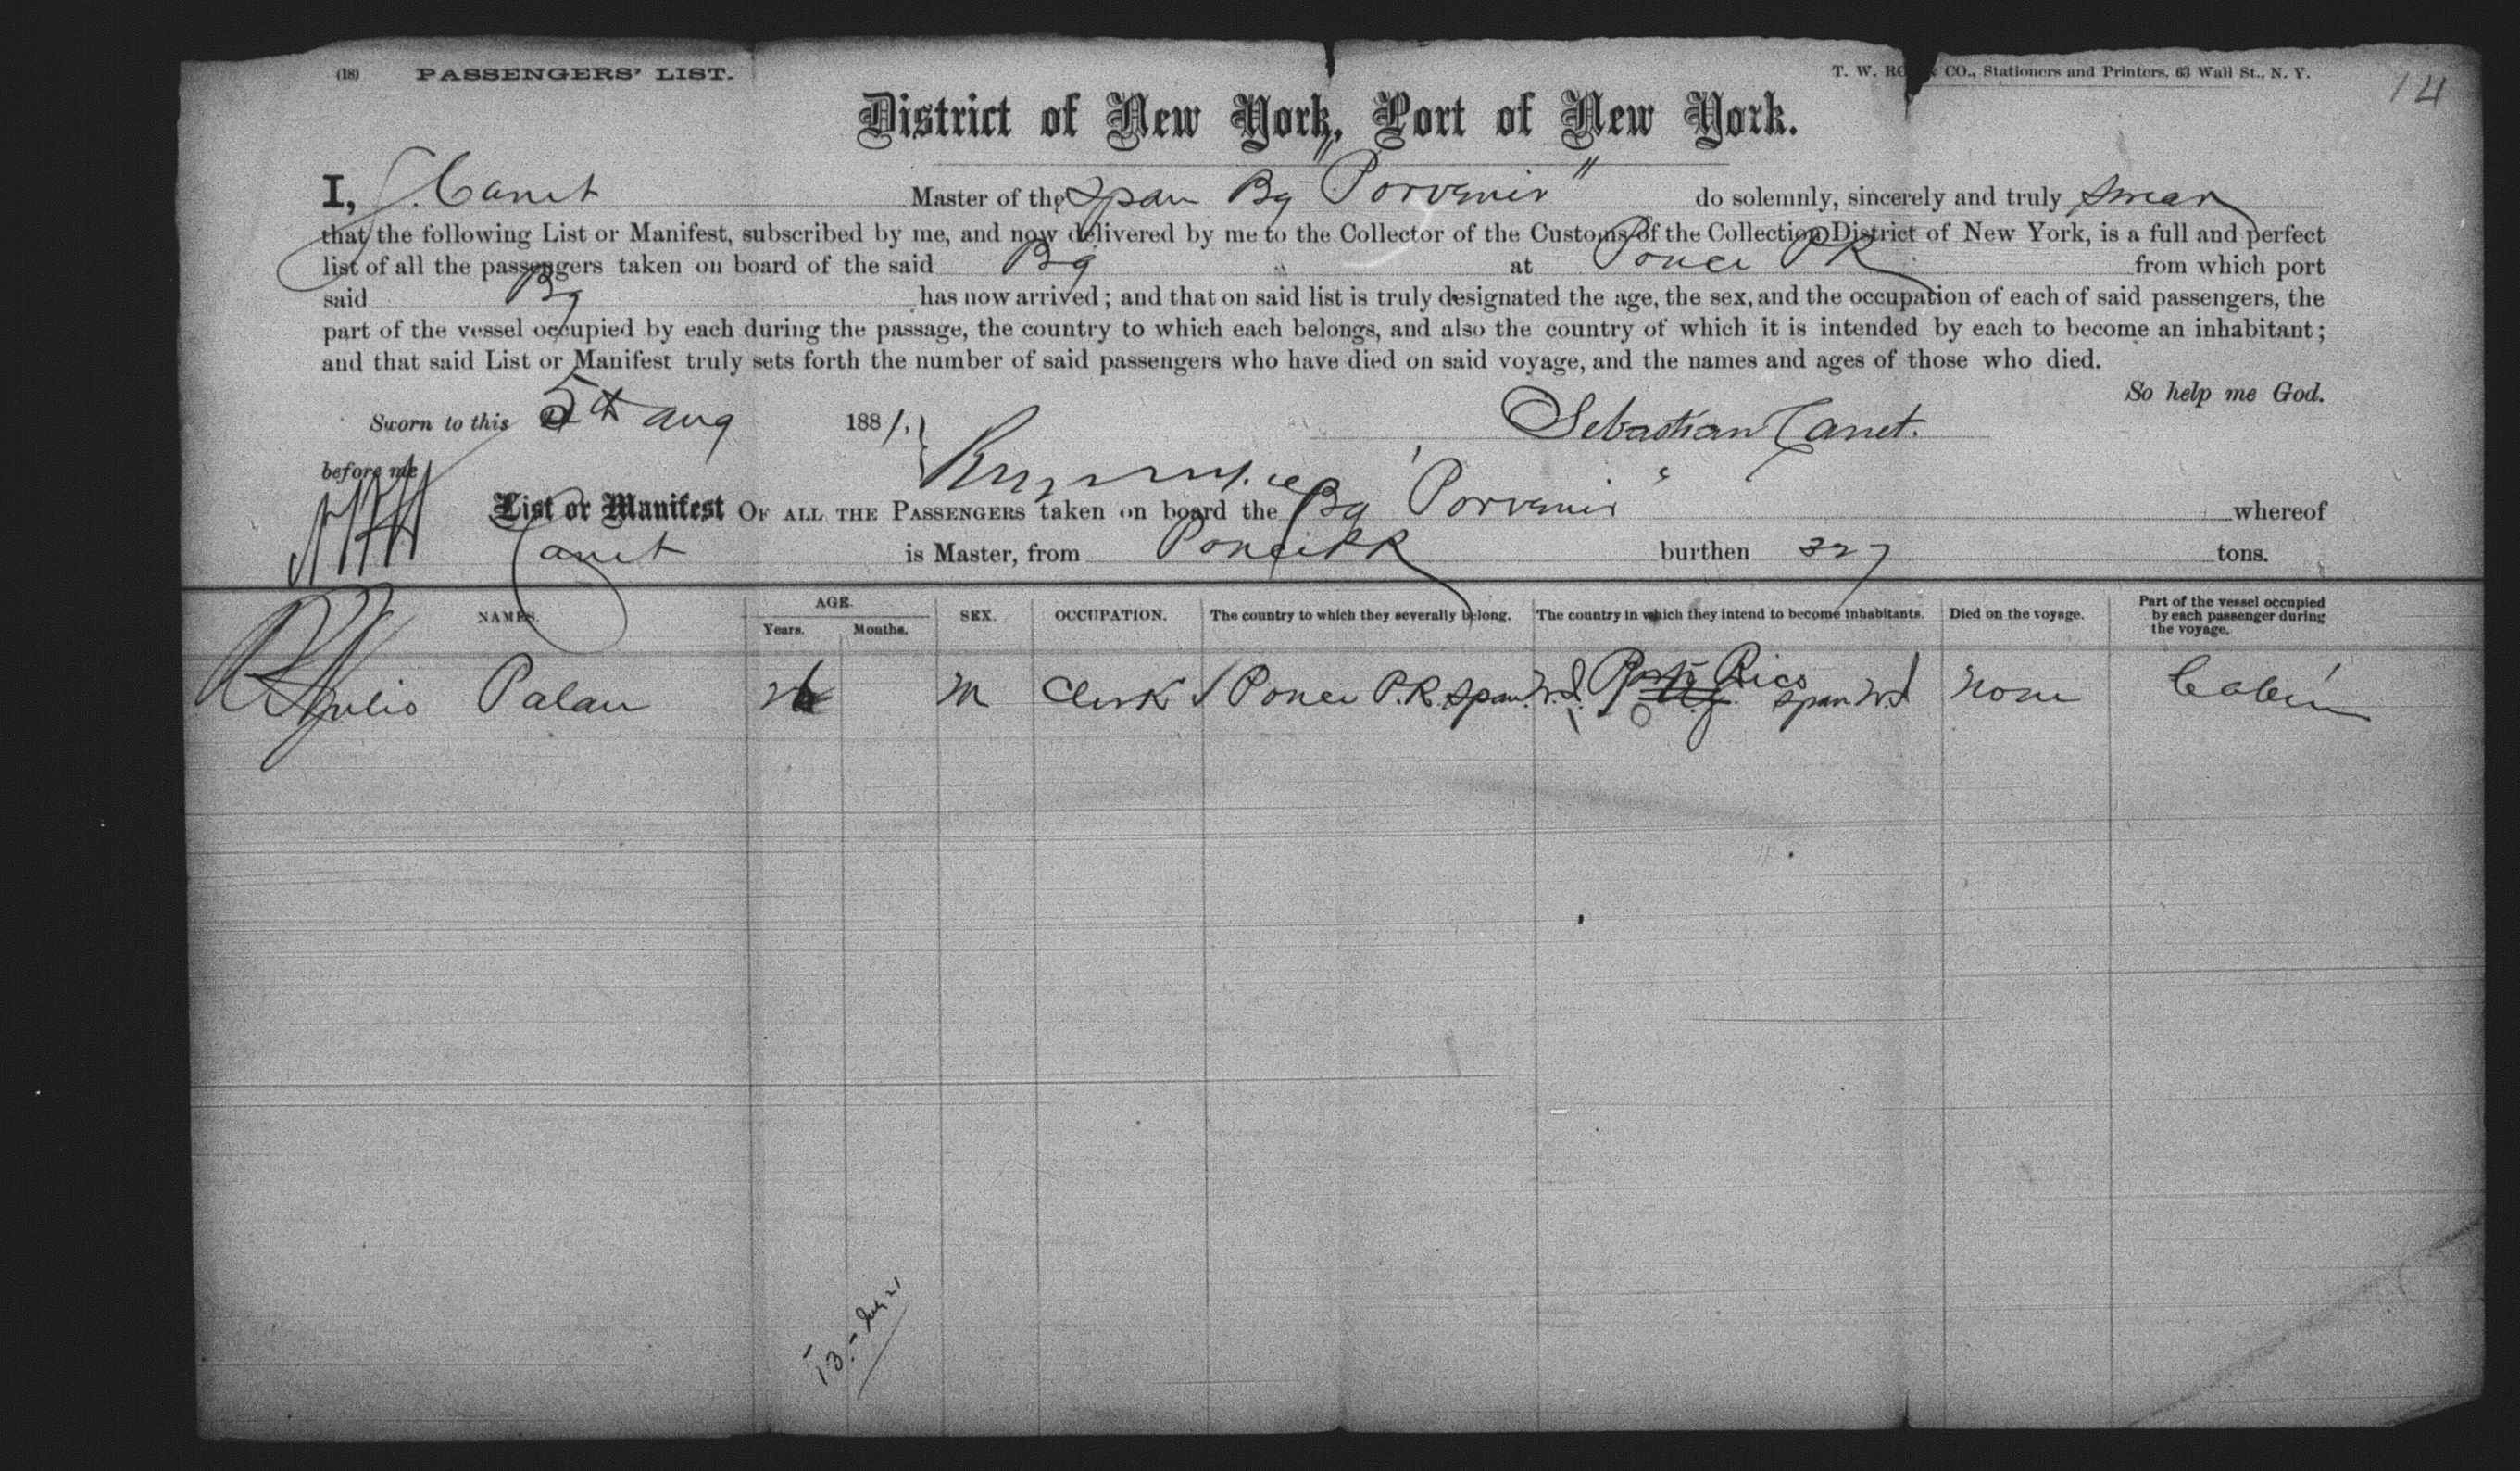 (18) PASSENGERS' LIST. T. W. & CO., Stationers and Printers, 63 Wall St., N. Y. 14
District of New York, Port of New York.
I, S. Canet Master of the Span Bg "Porvenir" do solemnly, sincerely and truly swear
that the following List or Manifest, subscribed by me, and now delivered by me to the Collector of the Customs of the Collection District of New York, is a full and perfect
list of all the passengers taken on board of the said Bg at Ponce PR from which port
said Bg has now arrived; and that on said list is truly designated the age, the sex, and the occupation of each of said passengers, the
part of the vessel occupied by each during the passage, the country to which each belongs, and also the country of which it is intended by each to become an inhabitant;
and that said List or Manifest truly sets forth the number of said passengers who have died on said voyage, and the names and ages of those who died.
So help me God.
Sworn to this 5th Aug 1881, Sebastian Canet.
before me
List or Manifest OF ALL THE PASSENGERS taken on board the Bg "Porvenir" whereof
Canet is Master, from Ponce PR burthen 327 tons.
NAMES. AGE. Years. Months. SEX. OCCUPATION. The country to which they severally belong. The country in which they intend to become inhabitants. Died on the voyage. Part of the vessel occupied by each passenger during the voyage.
Julio Palau M Clerk Ponce P.R. Span. W.I. Porto Rico Span W.I. None Cabin
13.- July 21